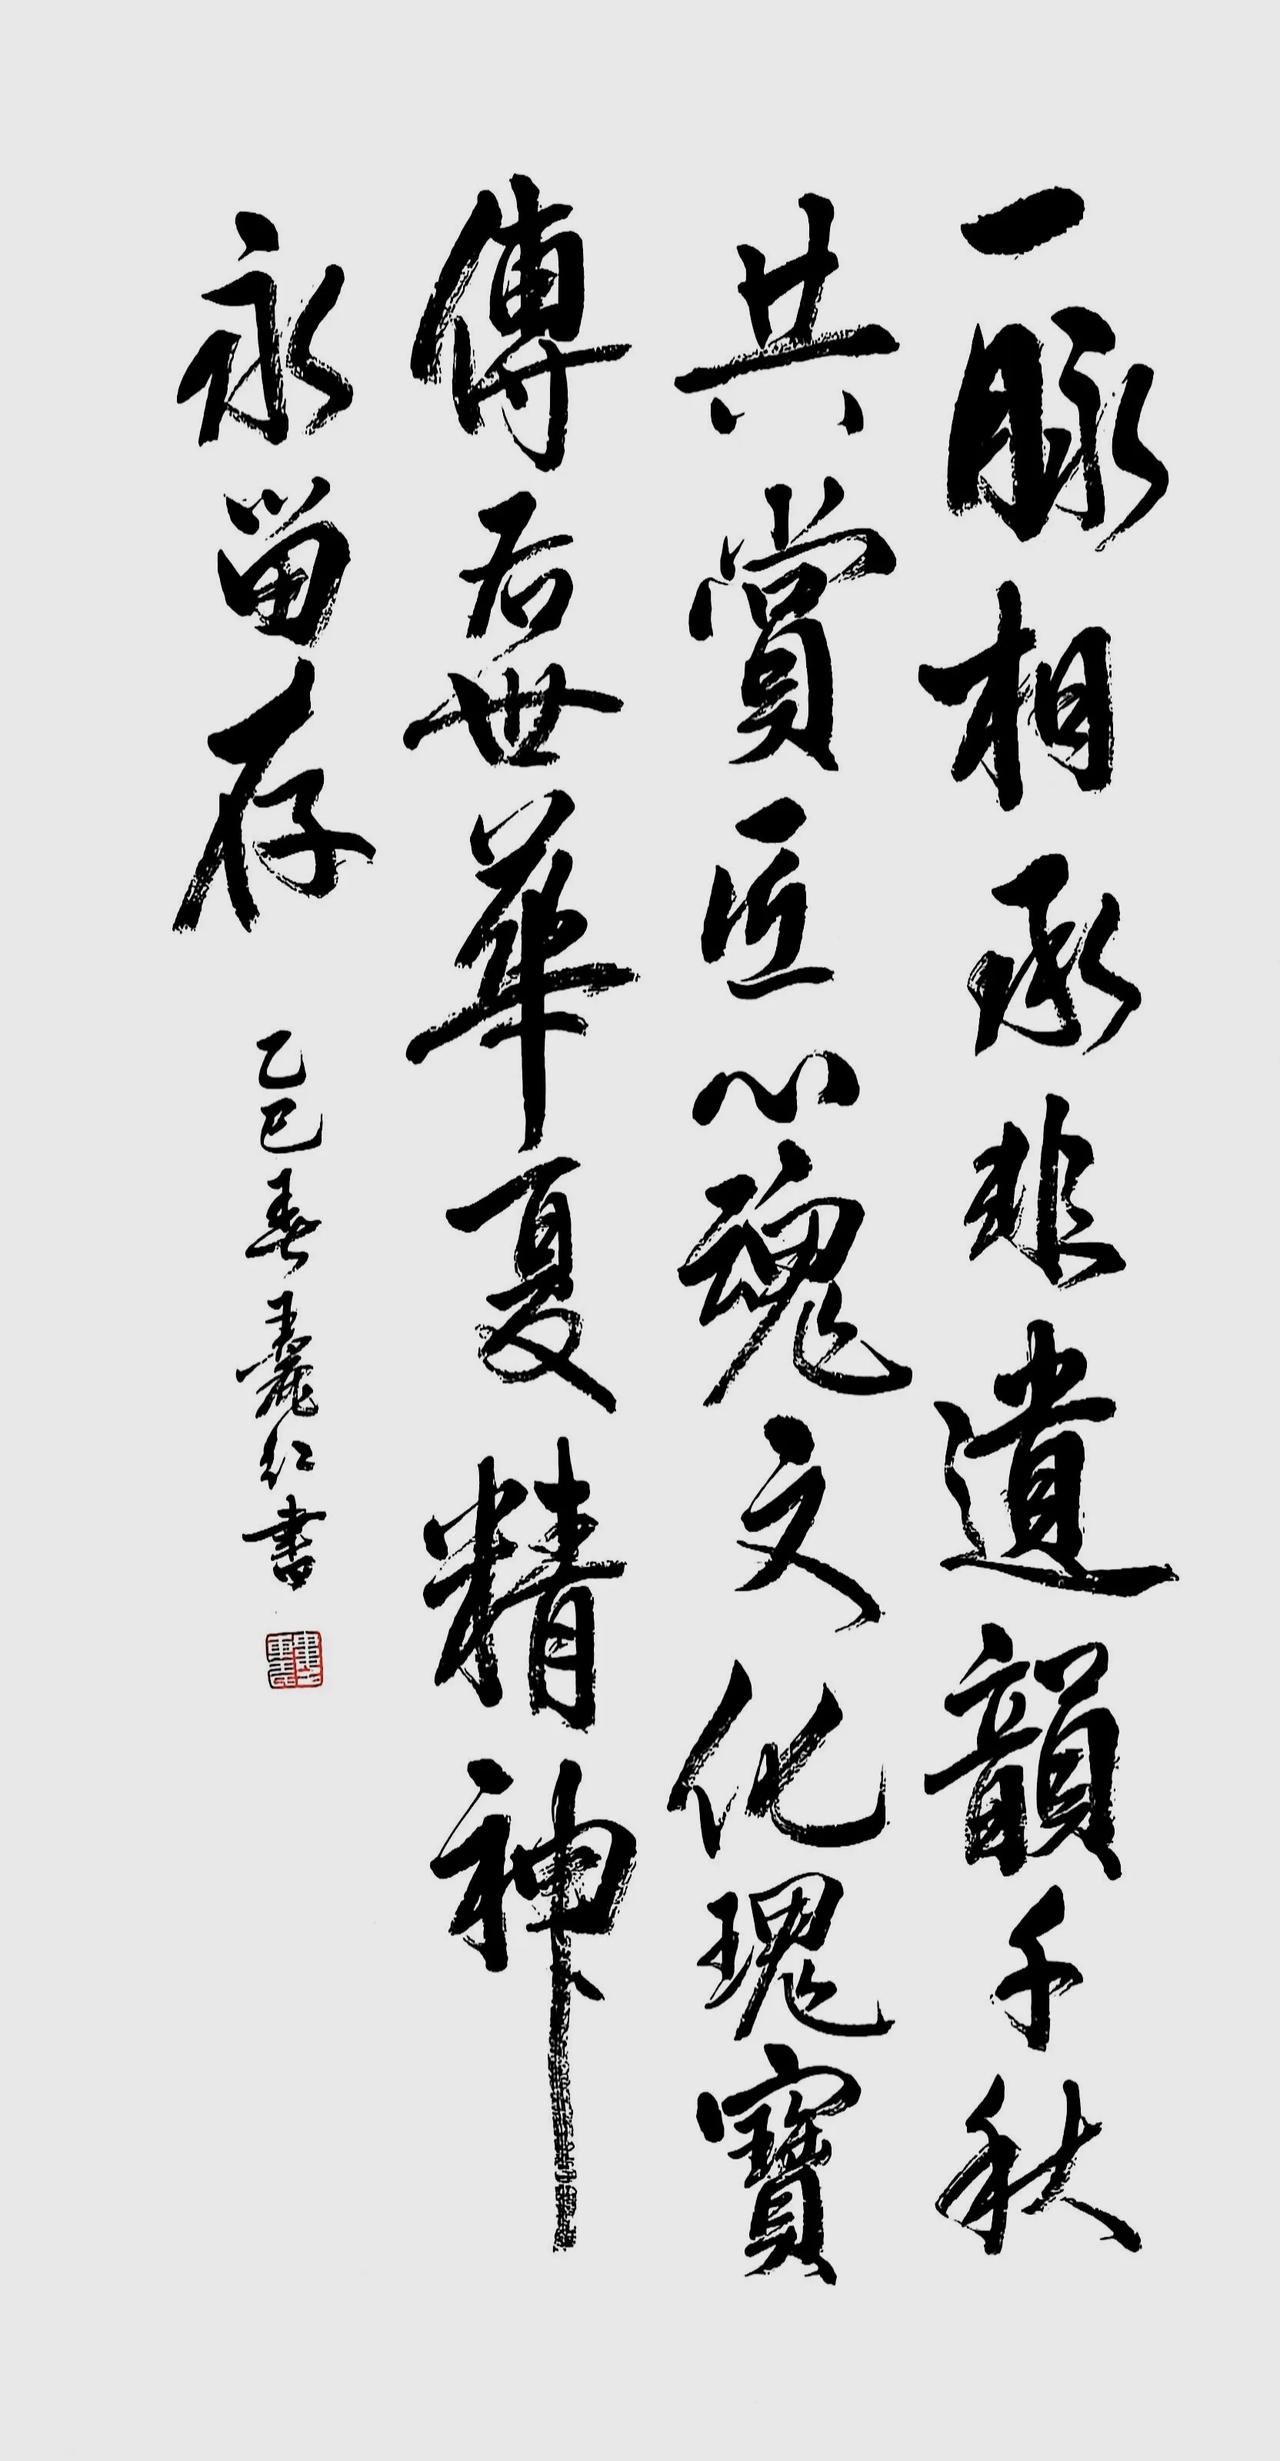 一脉相承非遺韻千秋
共賞匠心魂文化瑰寶
傳后世華夏精神
永留存
乙巳春王麗紅書